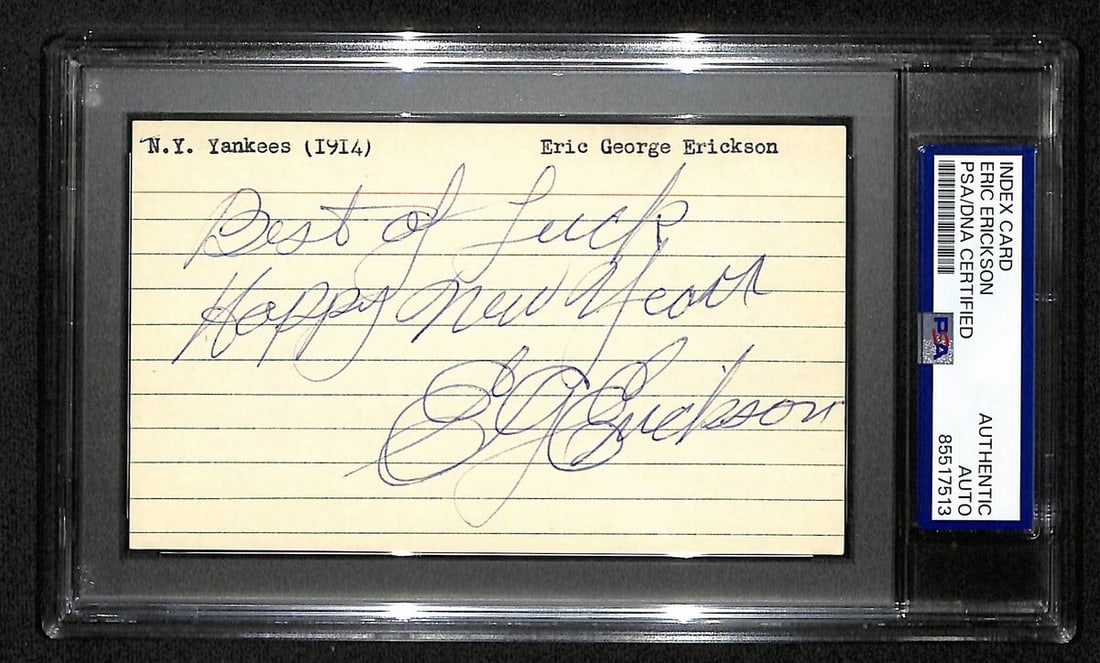 N.Y. Yankees (1914) Eric George Erickson
Best of Luck
Happy New Year
EG Erickson
INDEX CARD
ERIC ERICKSON
PSA/DNA CERTIFIED
AUTHENTIC
AUTO
85517513
PSA